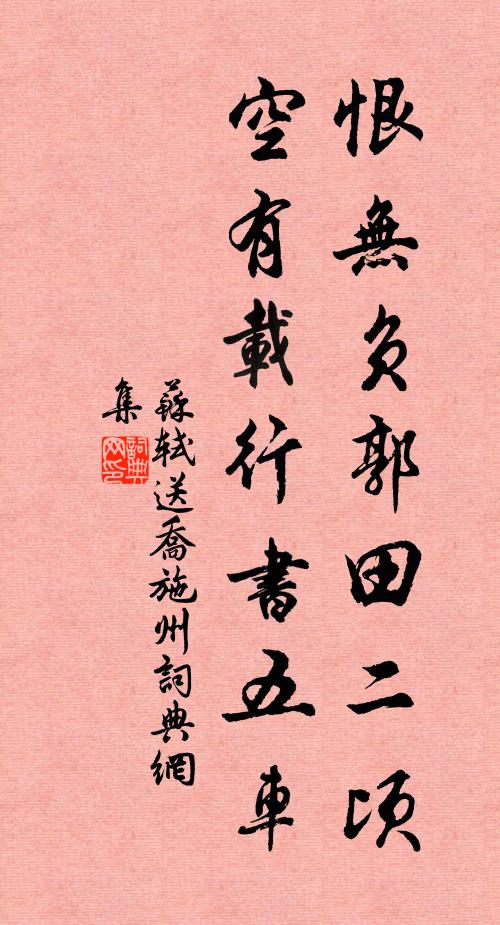 恨無負郭田二頃
空有載行書五車
蘇軾送喬施州詞典網
集
詞典網印